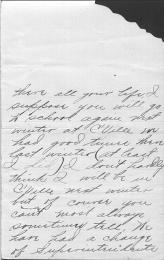 there all your life, I
suppose you will go
to school again next
winter at C'Ville we
had good times there
last winter (at least
I did) I don't really
think I will be in
C'Ville next winter
but of course you
can't most always
sometimes tell, We
have had a change
of Superintendents